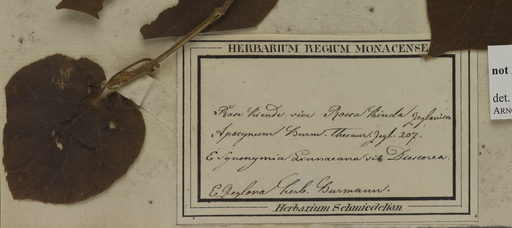 HERBARIUM REGIUM MONACENSE
Rase kiende sive Rossa kinda Zeylonica
Apocynum Burm. Thesaur. Zeyl. 207.
E Synonymia Linnaeana sit Dioscorea.
E Zeylona herb. Burmann.
Herbarium Schmiedelian
not
det.
ARNO